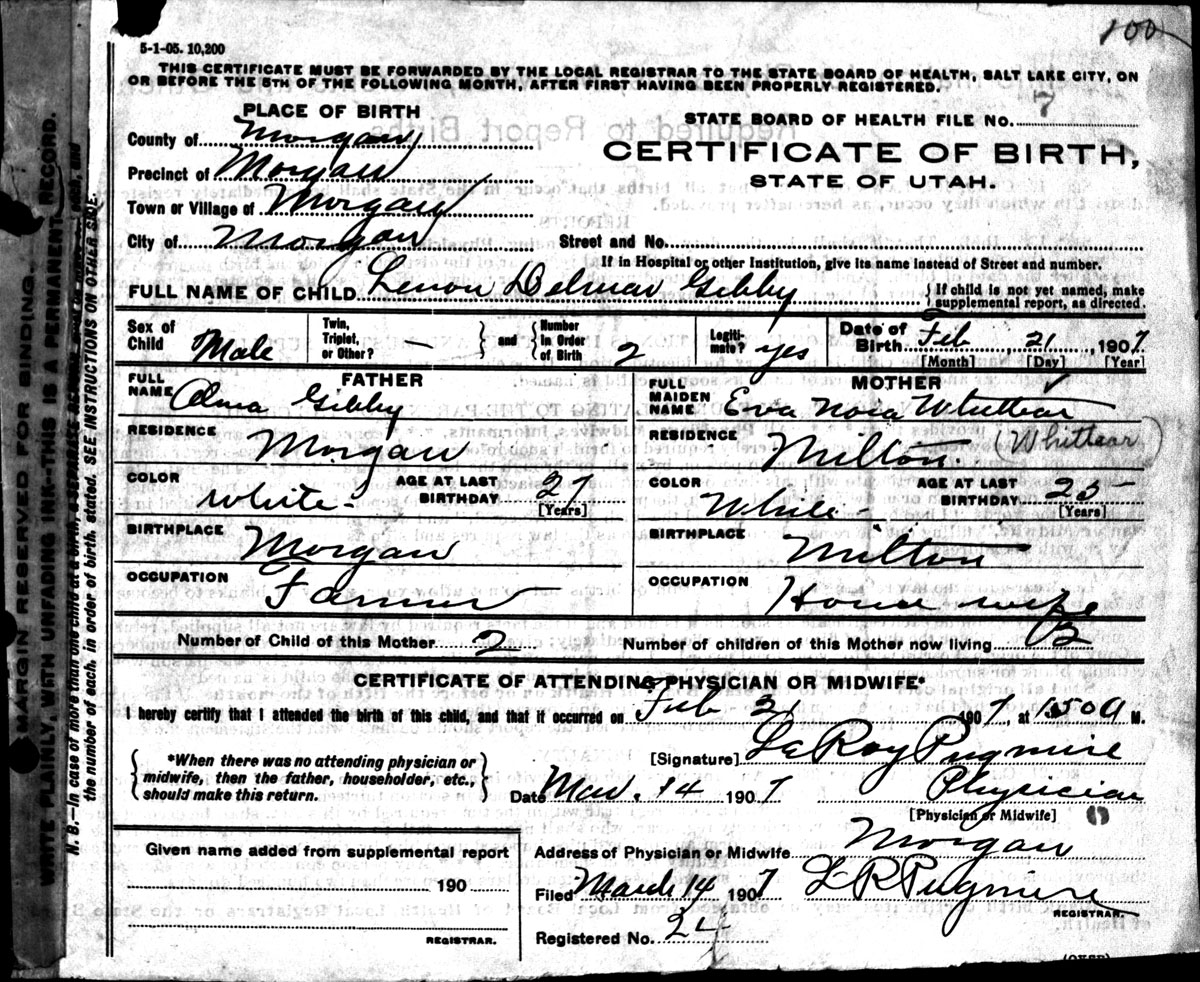 100
5-1-05. 10,200
THIS CERTIFICATE MUST BE FORWARDED BY THE LOCAL REGISTRAR TO THE STATE BOARD OF HEALTH, SALT LAKE CITY, ON
OR BEFORE THE 5TH OF THE FOLLOWING MONTH, AFTER FIRST HAVING BEEN PROPERLY REGISTERED.
PLACE OF BIRTH
STATE BOARD OF HEALTH FILE NO. 7
County of Morgan
CERTIFICATE OF BIRTH,
Precinct of Morgan
STATE OF UTAH.
Town or Village of Morgan
City of Morgan Street and No.
If in Hospital or other Institution, give its name instead of Street and number.
FULL NAME OF CHILD Lenon Delmar Gibby { If child is not yet named, make
supplemental report, as directed.
Sex of Child Male Twin, Triplet, or Other? — } and { Number in Order of Birth 2 Legiti-mate? yes Date of Birth Feb 21, 1907
[Month] [Day] [Year]
FATHER MOTHER
FULL NAME Alma Gibby FULL MAIDEN NAME Eva Nora Whittear
RESIDENCE Morgan RESIDENCE Milton (Whittear)
COLOR White AGE AT LAST BIRTHDAY 27 [Years] COLOR White AGE AT LAST BIRTHDAY 25 [Years]
BIRTHPLACE Morgan BIRTHPLACE Milton
OCCUPATION Farmer OCCUPATION House wife
Number of Child of this Mother 2 Number of children of this Mother now living 2
CERTIFICATE OF ATTENDING PHYSICIAN OR MIDWIFE*
I hereby certify that I attended the birth of this child, and that it occurred on Feb 21 1907, at M.
[Signature] LeRoy Pugmire
{ *When there was no attending physician or
midwife, then the father, householder, etc.,
should make this return. }
Date Mar. 14 1907 Physician
[Physician or Midwife]
Given name added from supplemental report
Address of Physician or Midwife Morgan
190
Filed March 14 1907 L R Pugmire
REGISTRAR.
REGISTRAR.
Registered No.
MARGIN RESERVED FOR BINDING.
WRITE PLAINLY, WITH UNFADING INK—THIS IS A PERMANENT RECORD.
N. B.—In case of more than one child at a birth, a SEPARATE RETURN
the number of each, in order of birth, stated. SEE INSTRUCTIONS ON OTHER SIDE.